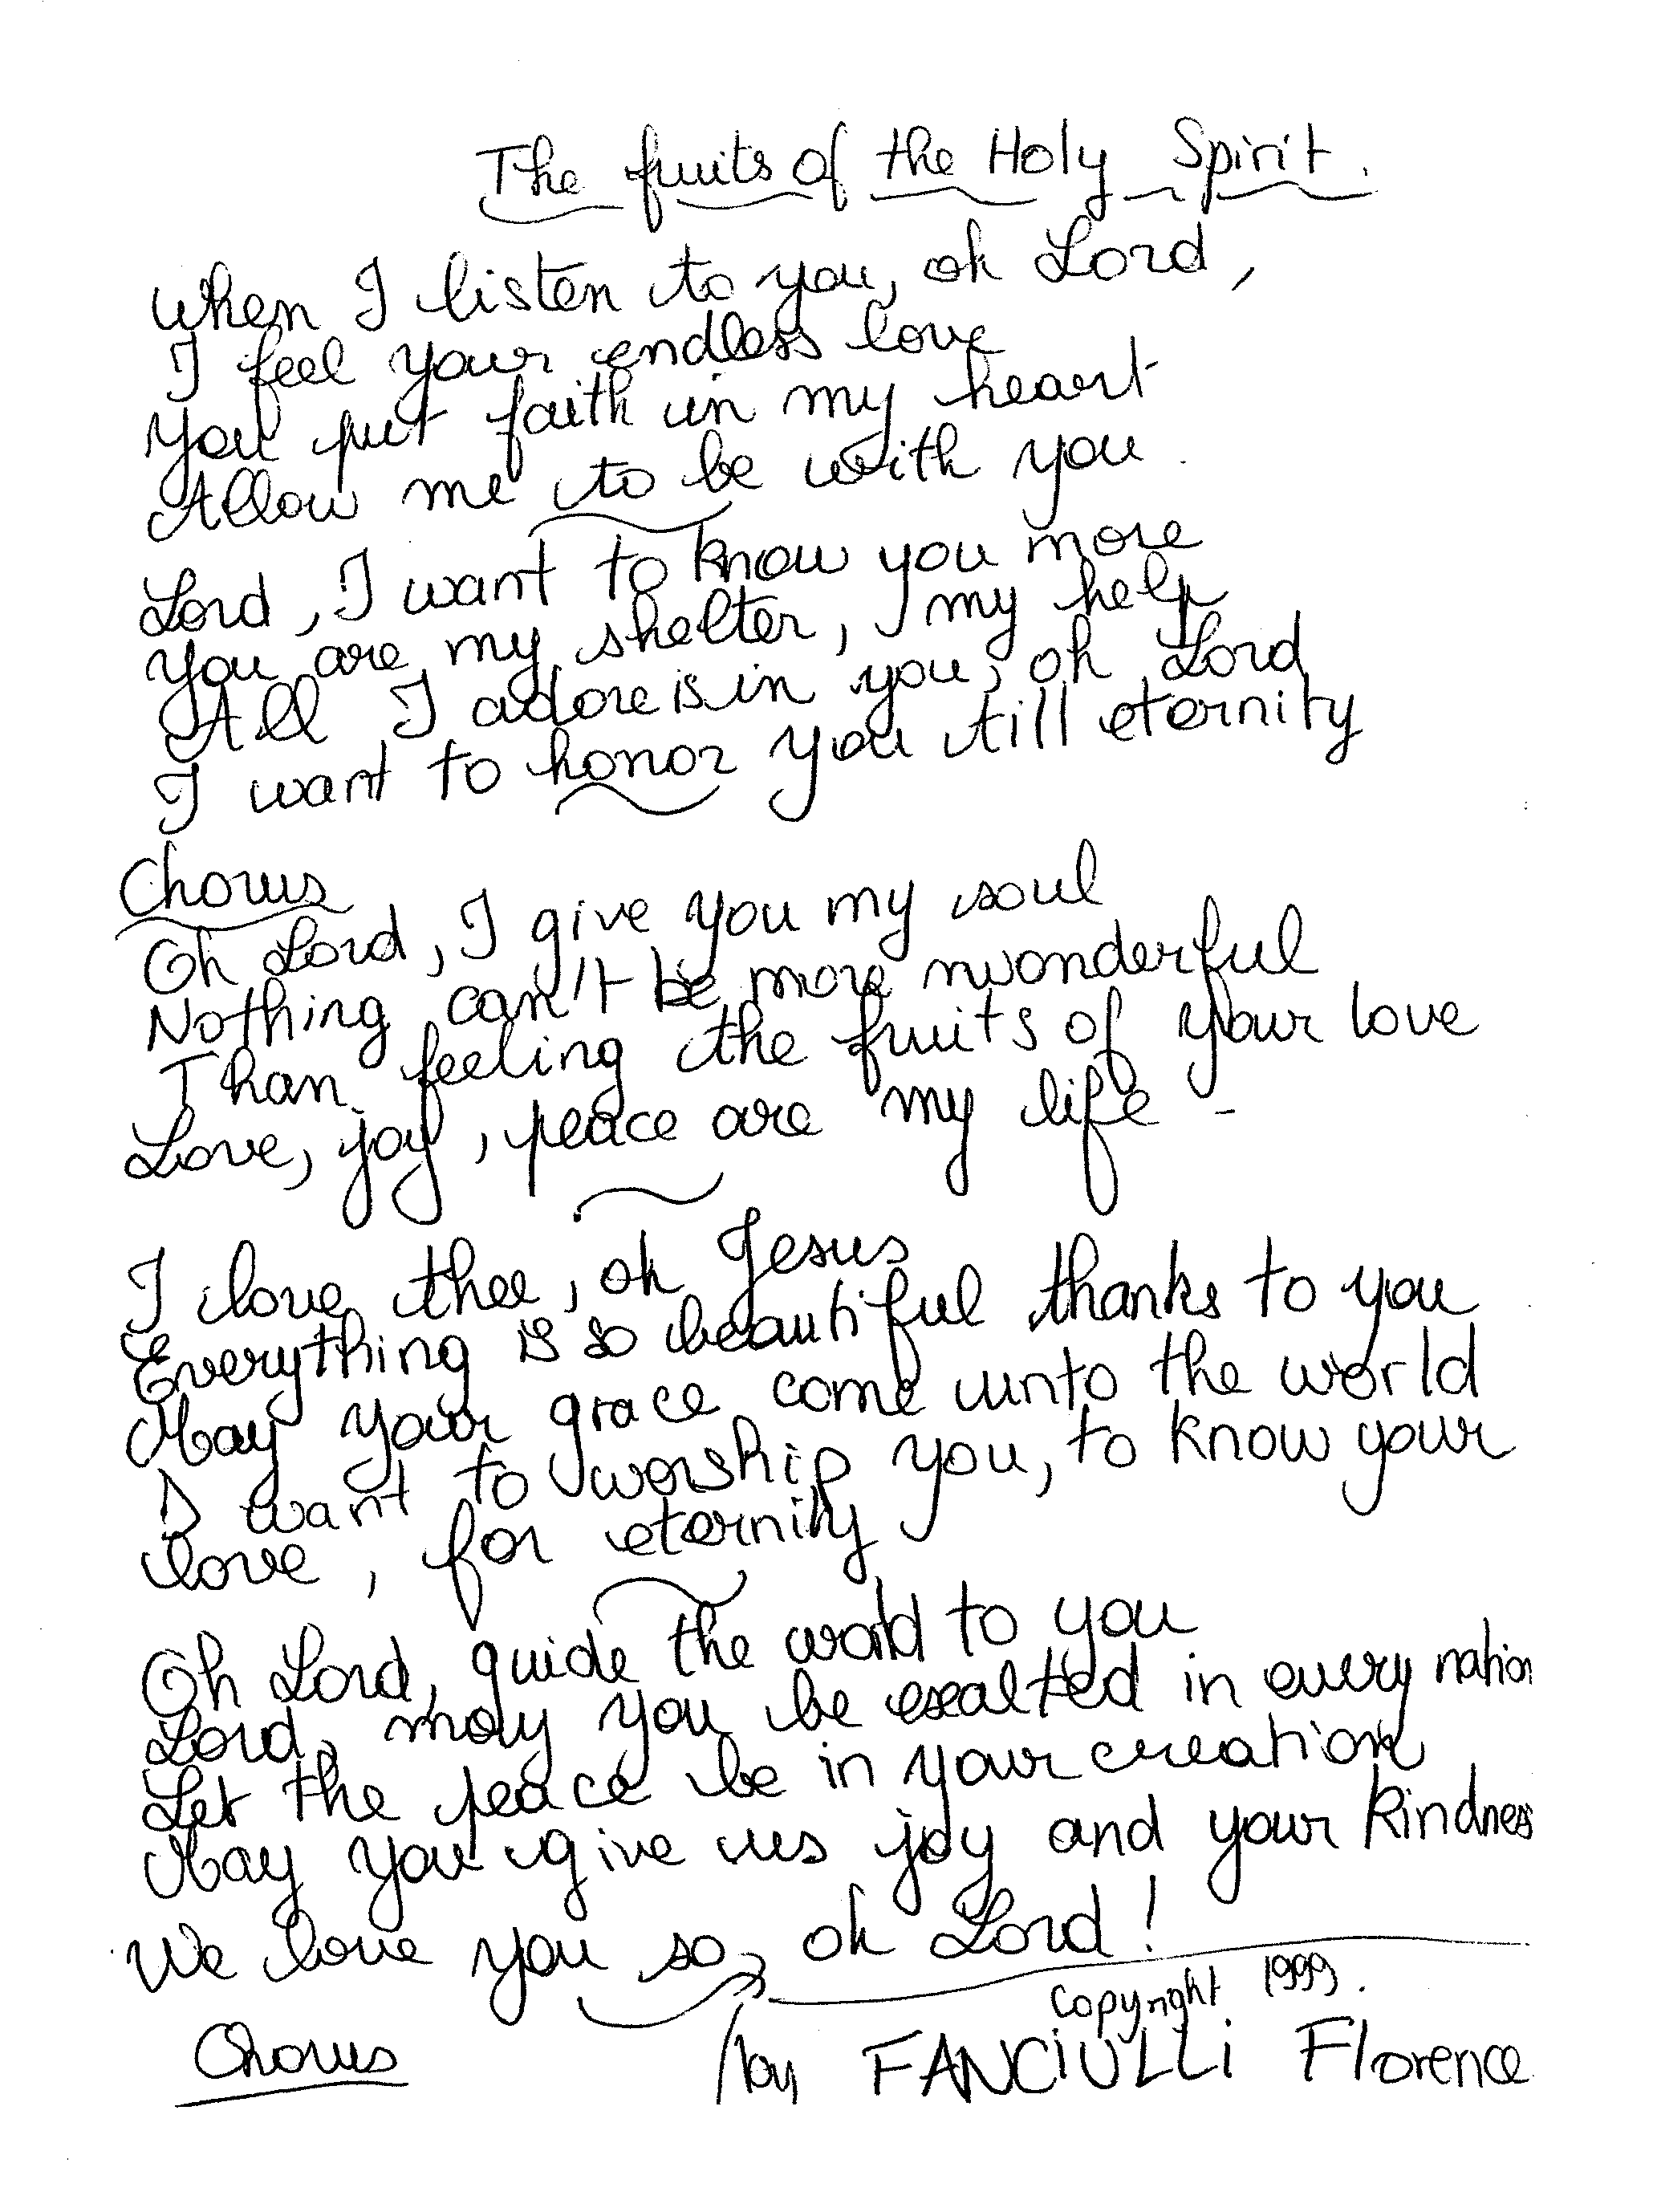 The fruits of the Holy Spirit.
When I listen to you, oh Lord,
I feel your endless love
You put faith in my heart
Allow me to be with you.
Lord, I want to know you more
You are my shelter, my help
All I adore is in you, oh Lord
I want to honor you till eternity
Chorus
Oh Lord, I give you my soul
Nothing can't be more wonderful
Than feeling the fruits of your love
Love, joy, peace are my life -
I love thee, oh Jesus
Everything is so beautiful thanks to you
May your grace come unto the world
I want to worship you, to know your
love, for eternity
Oh Lord, guide the world to you
Lord, may you be exalted in every nation
Let the peace be in your creation
May you give us joy and your kindness
We love you so, oh Lord!
Copyright 1999.
Chorus by FANCIULLI Florence